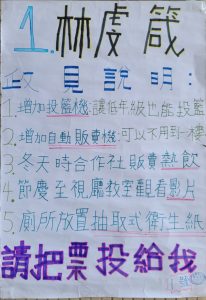 1.林虔箴
政見說明:
1.增加投籃機:讓低年級也能投籃
2.增加自動販賣機:可以不用到一樓
3.冬天時合作社販賣熱飲
4.節慶至視聽教室觀看影片
5.廁所放置抽取式衛生紙
請把票投給我